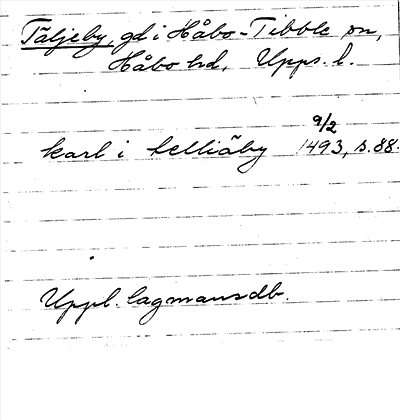 Täljeby, gd i Håbo-Tibble sn,
Håbo hd, Upps. l.
9/2
karl i telliäby 1493, s. 88.
Uppl. lagmansdb.